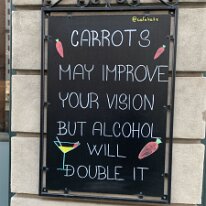 CARROTS
MAY IMPROVE
YOUR VISION
BUT ALCOHOL
WILL
DOUBLE IT